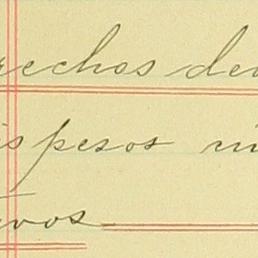 rechos de
is pesos
vos